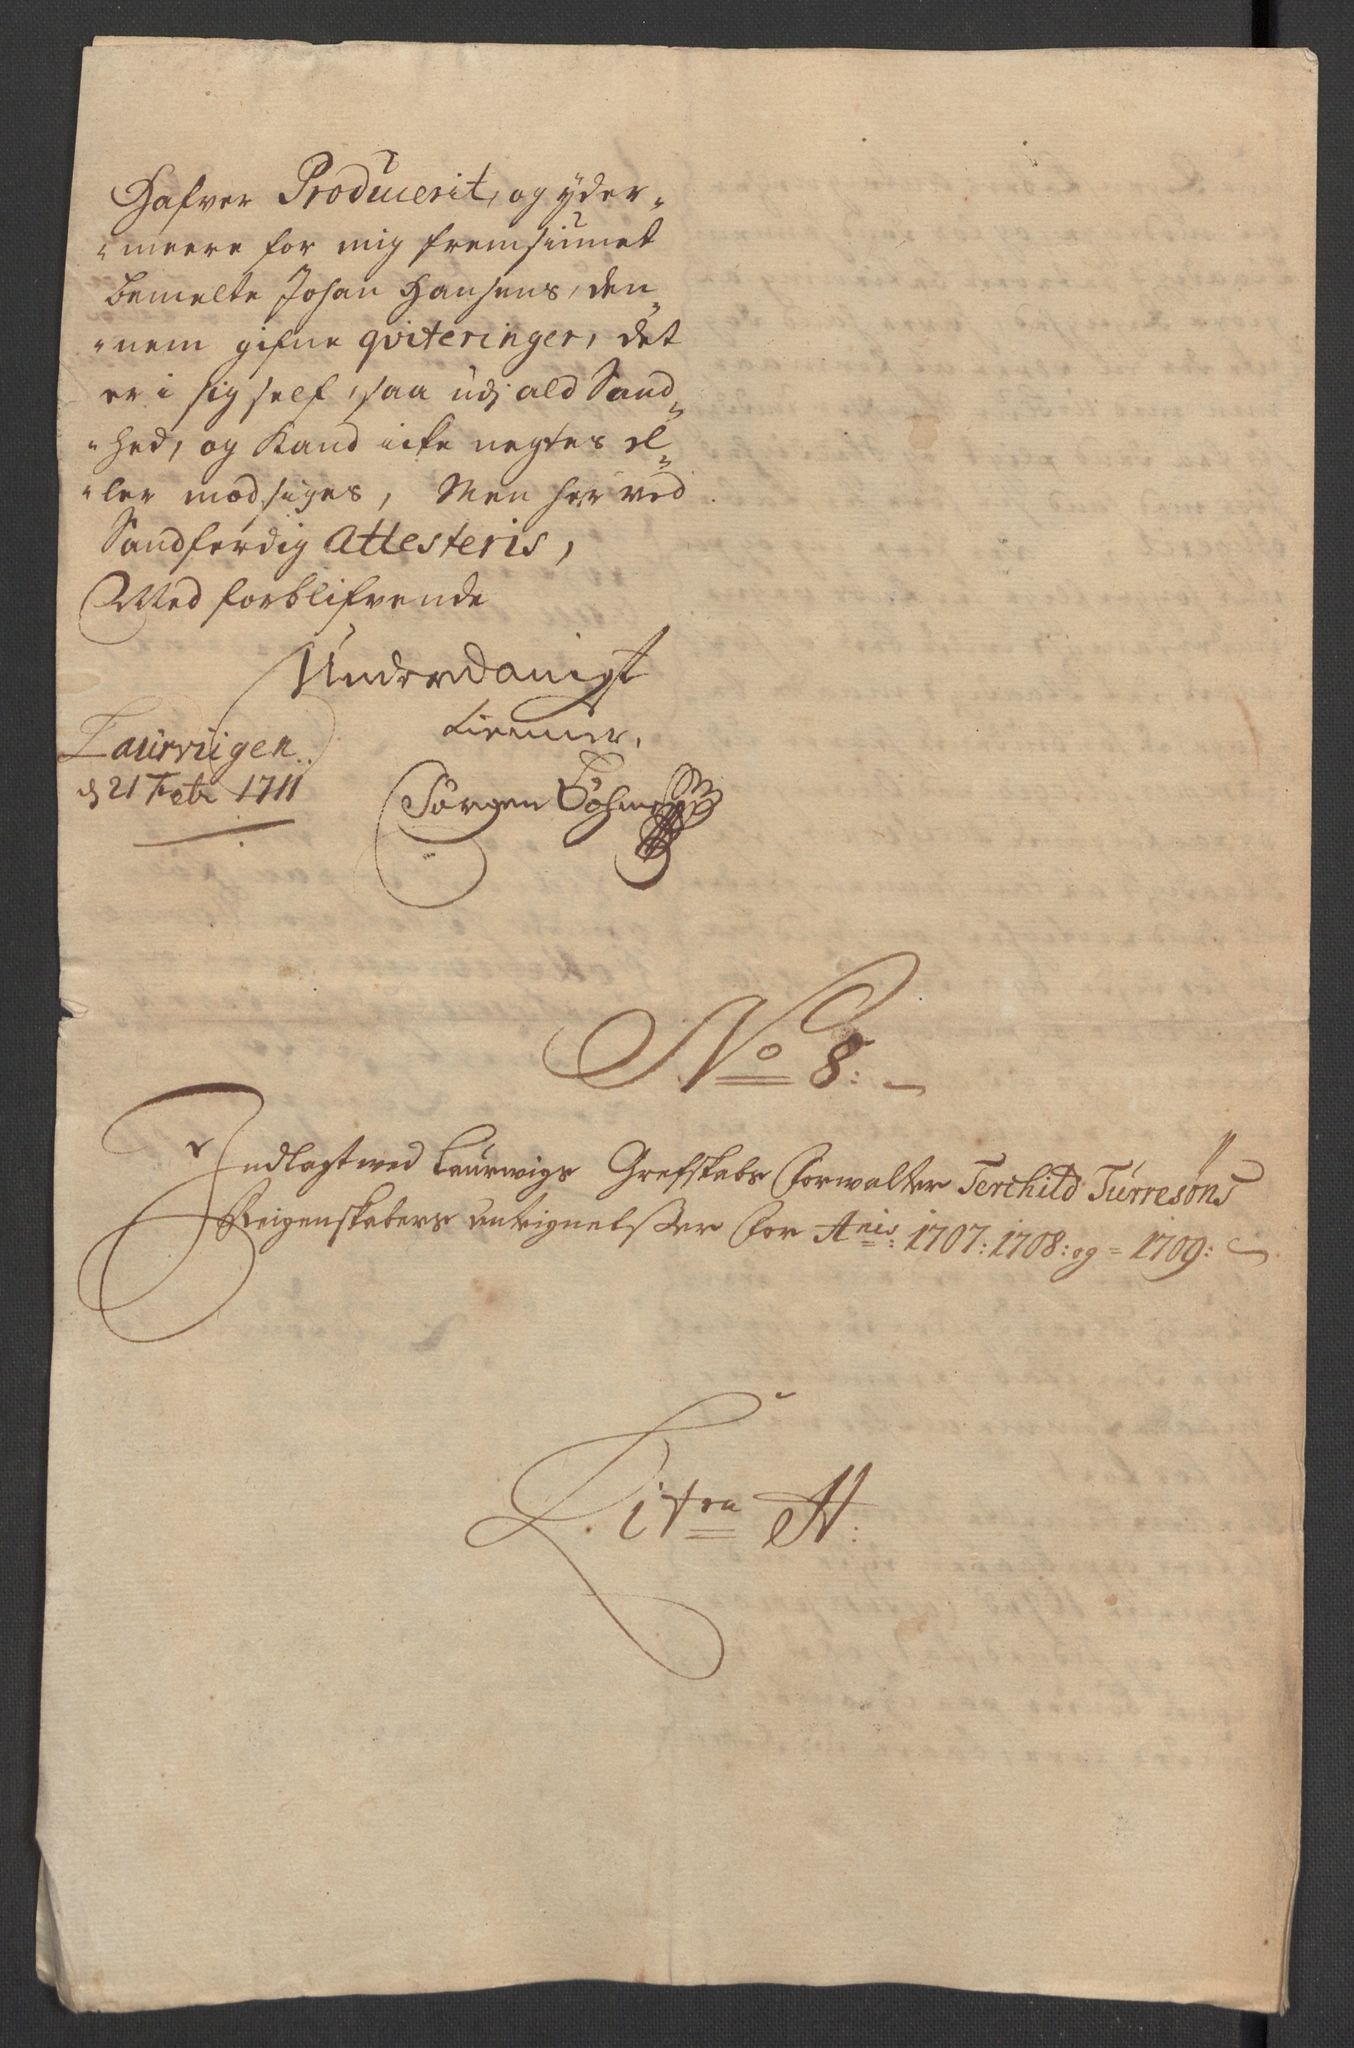 Hafver Producerit, og yder-
-meere for mig fremsiunet
bemelte Johan Hansens, den-
-nem gifne qviteringer, det
er i sig self, saa udj ald Sand-
-hed, og Kand icke negtes el-
-ler modsiges, Men her ved
Sandferdig Attesteris,
Med forblifvende
Underdanigst
tienner,
Laurviigen
d 21 Febr 1711
Jørgen Bøhme
No 8:
Indlagt wed Laurwigs Grefskabs Forwalter Terchild Turresøns
Reigenskabers Antignelsser for Anis: 1707: 1708: og = 1709:
Litra A: